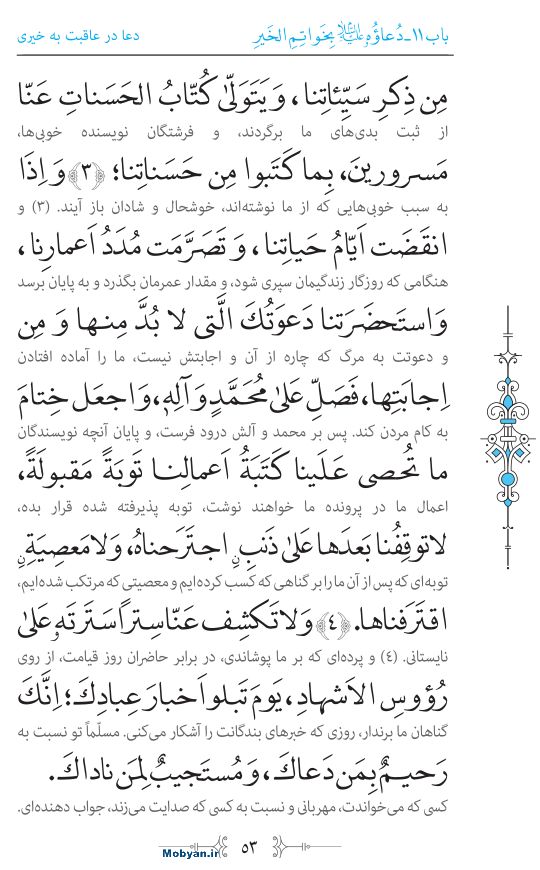 باب ١١ـ دُعاؤُه علیه‌السلام بِخَواتِمِ الخَیرِ
دعا در عاقبت به خیری
مِن ذِکرِ سَیِّئاتِنا، وَ یَتَوَلّیٰ کُتّابُ الحَسَناتِ عَنّا
از ثبت بدی‌های ما برگردند، و فرشتگان نویسنده خوبی‌ها،
مَسرورینَ، بِما کَتَبوا مِن حَسَناتِنا؛ ﴿٣﴾ وَ اِذَا
به سبب خوبی‌هایی که از ما نوشته‌اند، خوشحال و شادان باز آیند. (٣) و
انقَضَت اَیّامُ حَیاتِنا، وَ تَصَرَّمَت مُدَدُ اَعمارِنا،
هنگامی که روزگار زندگیمان سپری شود، و مقدار عمرمان بگذرد و به پایان برسد
وَ استَحضَرَتنا دَعوَتُكَ الَّتی لا بُدَّ مِنها وَ مِن
و دعوتت به مرگ که چاره از آن و اجابتش نیست، ما را آماده افتادن
اِجابَتِها، فَصَلِّ عَلیٰ مُحَمَّدٍ وَ آلِهِ، وَ اجعَل خِتامَ
به کام مردن کند. پس بر محمد و آلش درود فرست، و پایان آنچه نویسندگان
ما تُحصی عَلَینا کَتَبَةُ اَعمالِنا تَوبَةً مَقبولَةً،
اعمال ما در پرونده ما خواهند نوشت، توبه پذیرفته شده قرار بده،
لا توقِفُنا بَعدَها عَلیٰ ذَنبٍ اجتَرَحناهُ، وَ لا مَعصِیَةٍ
توبه‌ای که پس از آن ما را بر گناهی که کسب کرده‌ایم و معصیتی که مرتکب شده‌ایم،
اقتَرَفناها. ﴿٤﴾ وَ لا تَکشِف عَنّا سِتراً سَتَرتَهُ عَلیٰ
نایستانی. (٤) و پرده‌ای که بر ما پوشاندی، در برابر حاضران روز قیامت، از روی
رُؤوسِ الاَشهادِ، یَومَ تَبلو اَخبارَ عِبادِكَ؛ اِنَّكَ
گناهان ما برندار، روزی که خبرهای بندگانت را آشکار می‌کنی. مسلّماً تو نسبت به
رَحیمٌ بِمَن دَعاكَ، وَ مُستَجیبٌ لِمَن ناداكَ.
کسی که می‌خواندت، مهربانی و نسبت به کسی که صدایت می‌زند، جواب دهنده‌ای.
٥٣
Mobyan.ir